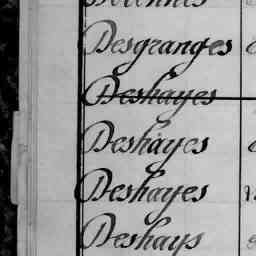 Desgranges
Deshayes
Deshayes
Deshayes
Deshays